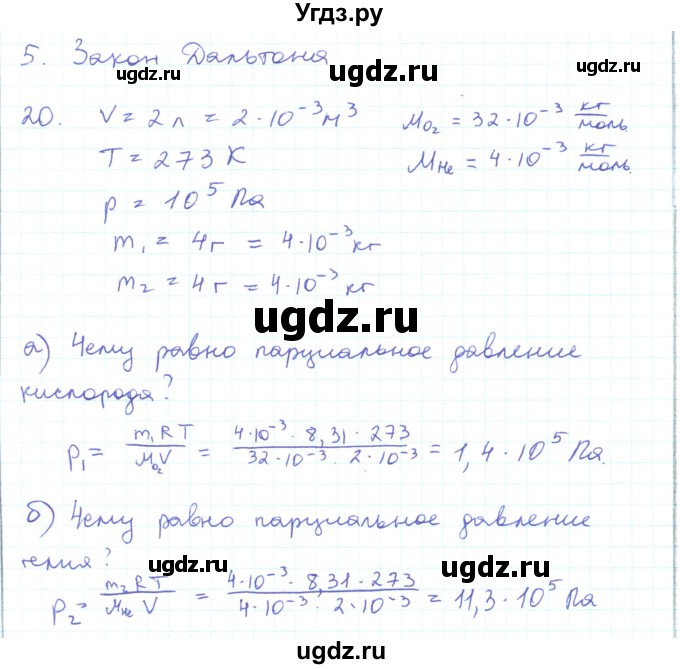 Угдз.ру
5. Закон Дальтона
ugdz.ru ugdz.ru ugdz.ru
20. V = 2 л = 2·10⁻³ м³ M_O₂ = 32·10⁻³ кг/моль
T = 273 К M_He = 4·10⁻³ кг/моль
p = 10⁵ Па
m₁ = 4 г = 4·10⁻³ кг
m₂ = 4 г = 4·10⁻³ кг
ugdz.ru
а) Чему равно парциальное давление
кислорода?
ugdz.ru ugdz.ru
p₁ = m₁RT/M_O₂V = 4·10⁻³·8,31·273/32·10⁻³·2·10⁻³ = 1,4·10⁵ Па.
ugdz.ru
б) Чему равно парциальное давление
гелия?
ugdz.ru ugdz.ru
p₂ = m₂RT/M_He V = 4·10⁻³·8,31·273/4·10⁻³·2·10⁻³ = 11,3·10⁵ Па
ugdz.ru